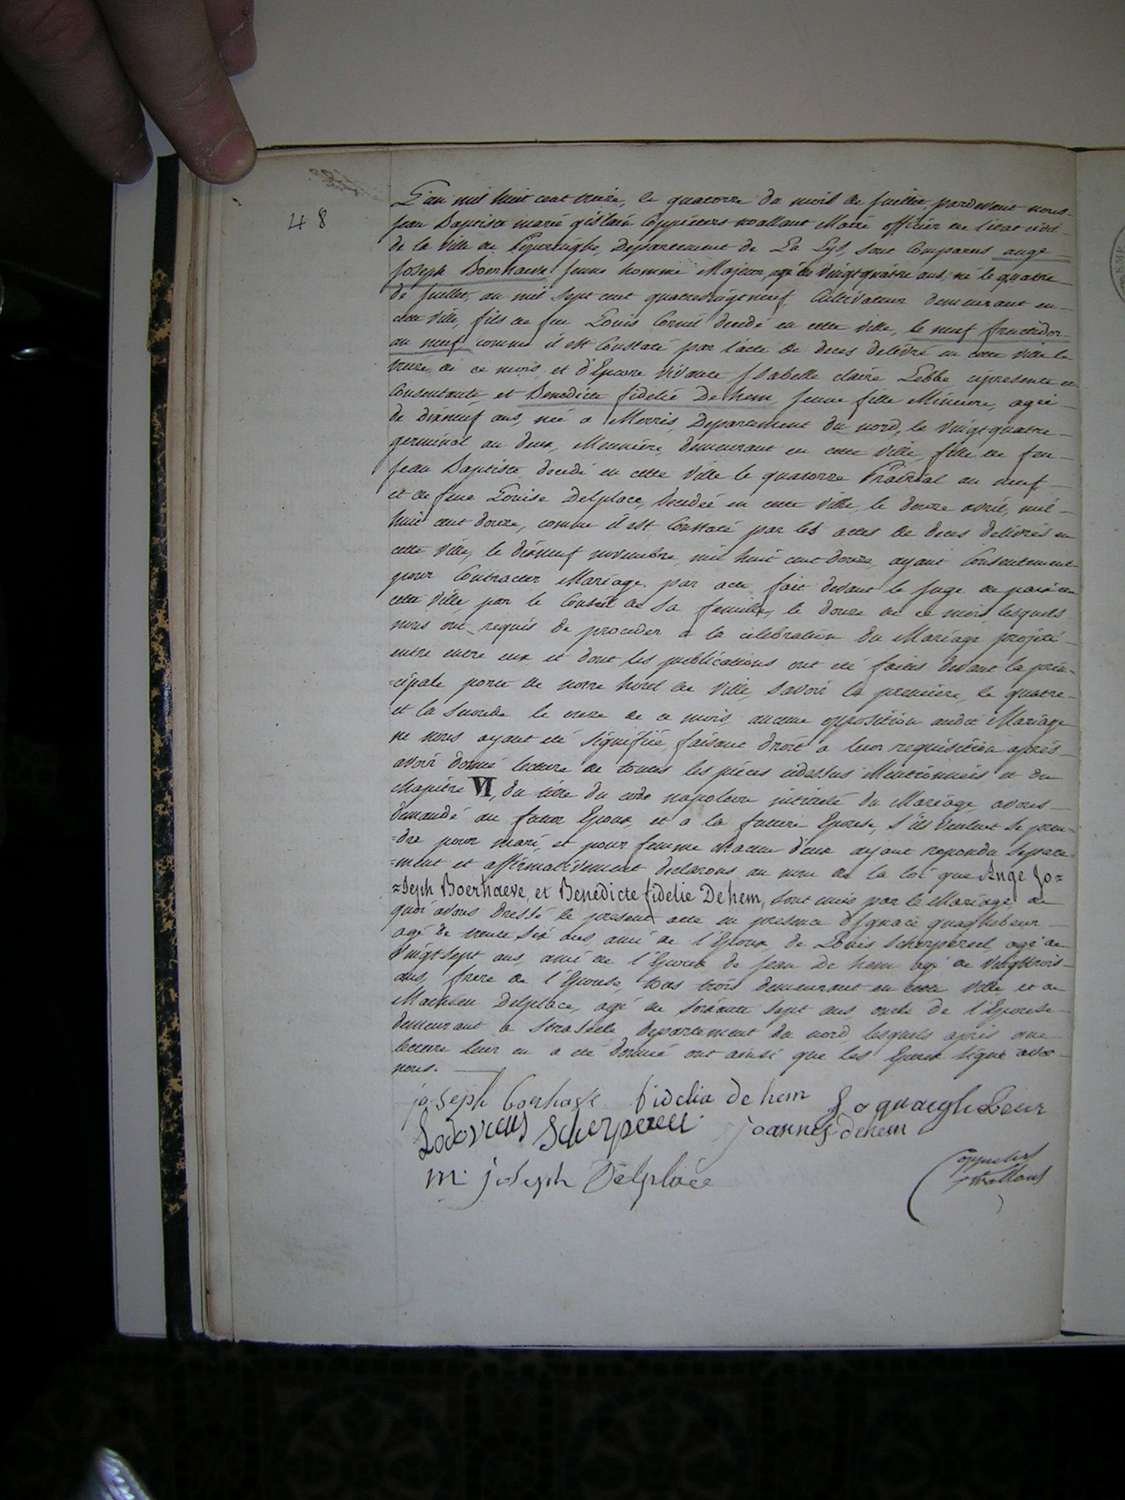 48
L'an mil huit cent treize, le quatorze du mois de Juillet pardevant nous
Jean Baptiste marie Ghislain Coppieters Wallant Maire officier de l'etat civil
de la Ville de Poperinghe, Departement de La Lys, sont comparus ange
Joseph Boerhaeve jeune homme Majeur, agé de vingt quatre ans, né le quatre
de Juillet, an mil sept cent quatrevingtneuf Cultivateur demeurant en
cette Ville, fils de feu Louis Corneil decedé en cette ville, le neuf fructidor
an neuf comme il est Constaté par l'acte de deces delivré en cette ville le
treize de ce mois, et d'Encore Vivante Isabelle claire Lebbe, cipresente et
Consentante et Benedicte fidelie De hem, jeune fille Mineure, agée
de dixneuf ans, née a Merris Departement du nord, le vingt quatre
germinal an deux, Meunière demeurant en cette Ville, fille de feu
Jean Baptiste decedé en cette Ville le quatorze Prairial an neuf
et de feue Louise Delplace, decedée en cette ville, le douze avril, mil
huit cent douze, comme il est Constaté par les actes de deces delivrés en
cette Ville, le dixneuf novembre, mil huit cent douze, ayant Consentement
pour Contracter Mariage par acte fait devant le Juge de paix en
cette Ville par le Conseil de sa famille, le douze de ce mois lesquels
nous ont requis de proceder a la célébration du Mariage projetté
entre eux et dont les publications ont été faites devant la prin-
-cipale porte de notre hotel de Ville, savoir la premiere, le quatre
et la Seconde le onze de ce mois, aucune opposition audit Mariage
ne nous ayant été Signifiée, faisant droit a leur requisition après
avoir donné lecture de toutes les pièces cidessus Mentionnées et du
chapitre VI, du titre du code napoleon intitulé du Mariage avons
demandé au futur Epoux, et a la future Epouse, S'ils veulent se pren-
-dre pour mari, et pour femme chacun d'eux ayant repondu separe-
-ment et affirmativement declarons au nom de la loi que Ange Jo=
=Seph Boerhaeve, et Benedicte fidelie De hem, sont unis par le Mariage, de
quoi avons Dressé le present acte en presence D'Ignace quaghebeur
agé de trente six ans, ami de l'Epoux de Louis Scherpereel, agé de
Vingtsept ans ami de l'Epoux de Jean De hem agé de vingttrois
ans, frere de l'Epouse, tous trois demeurant en cette Ville et de
Mathieu Delplace, agé de soixante sept ans oncle de l'Epouse
demeurant a Strazeele departement du nord, lesquels après que
lecture leur en a été donnée ont ainsi que les Epoux signé avec
nous.
joseph boerhave fidelia de hem J quaeghebeur
Lodovicus Scherpereel joannes dehem
m: joseph Delplace
Coppieters
Wallant